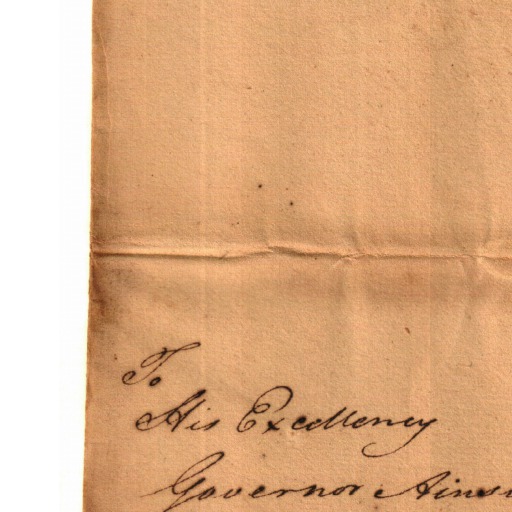 To
His Excellency
Governor